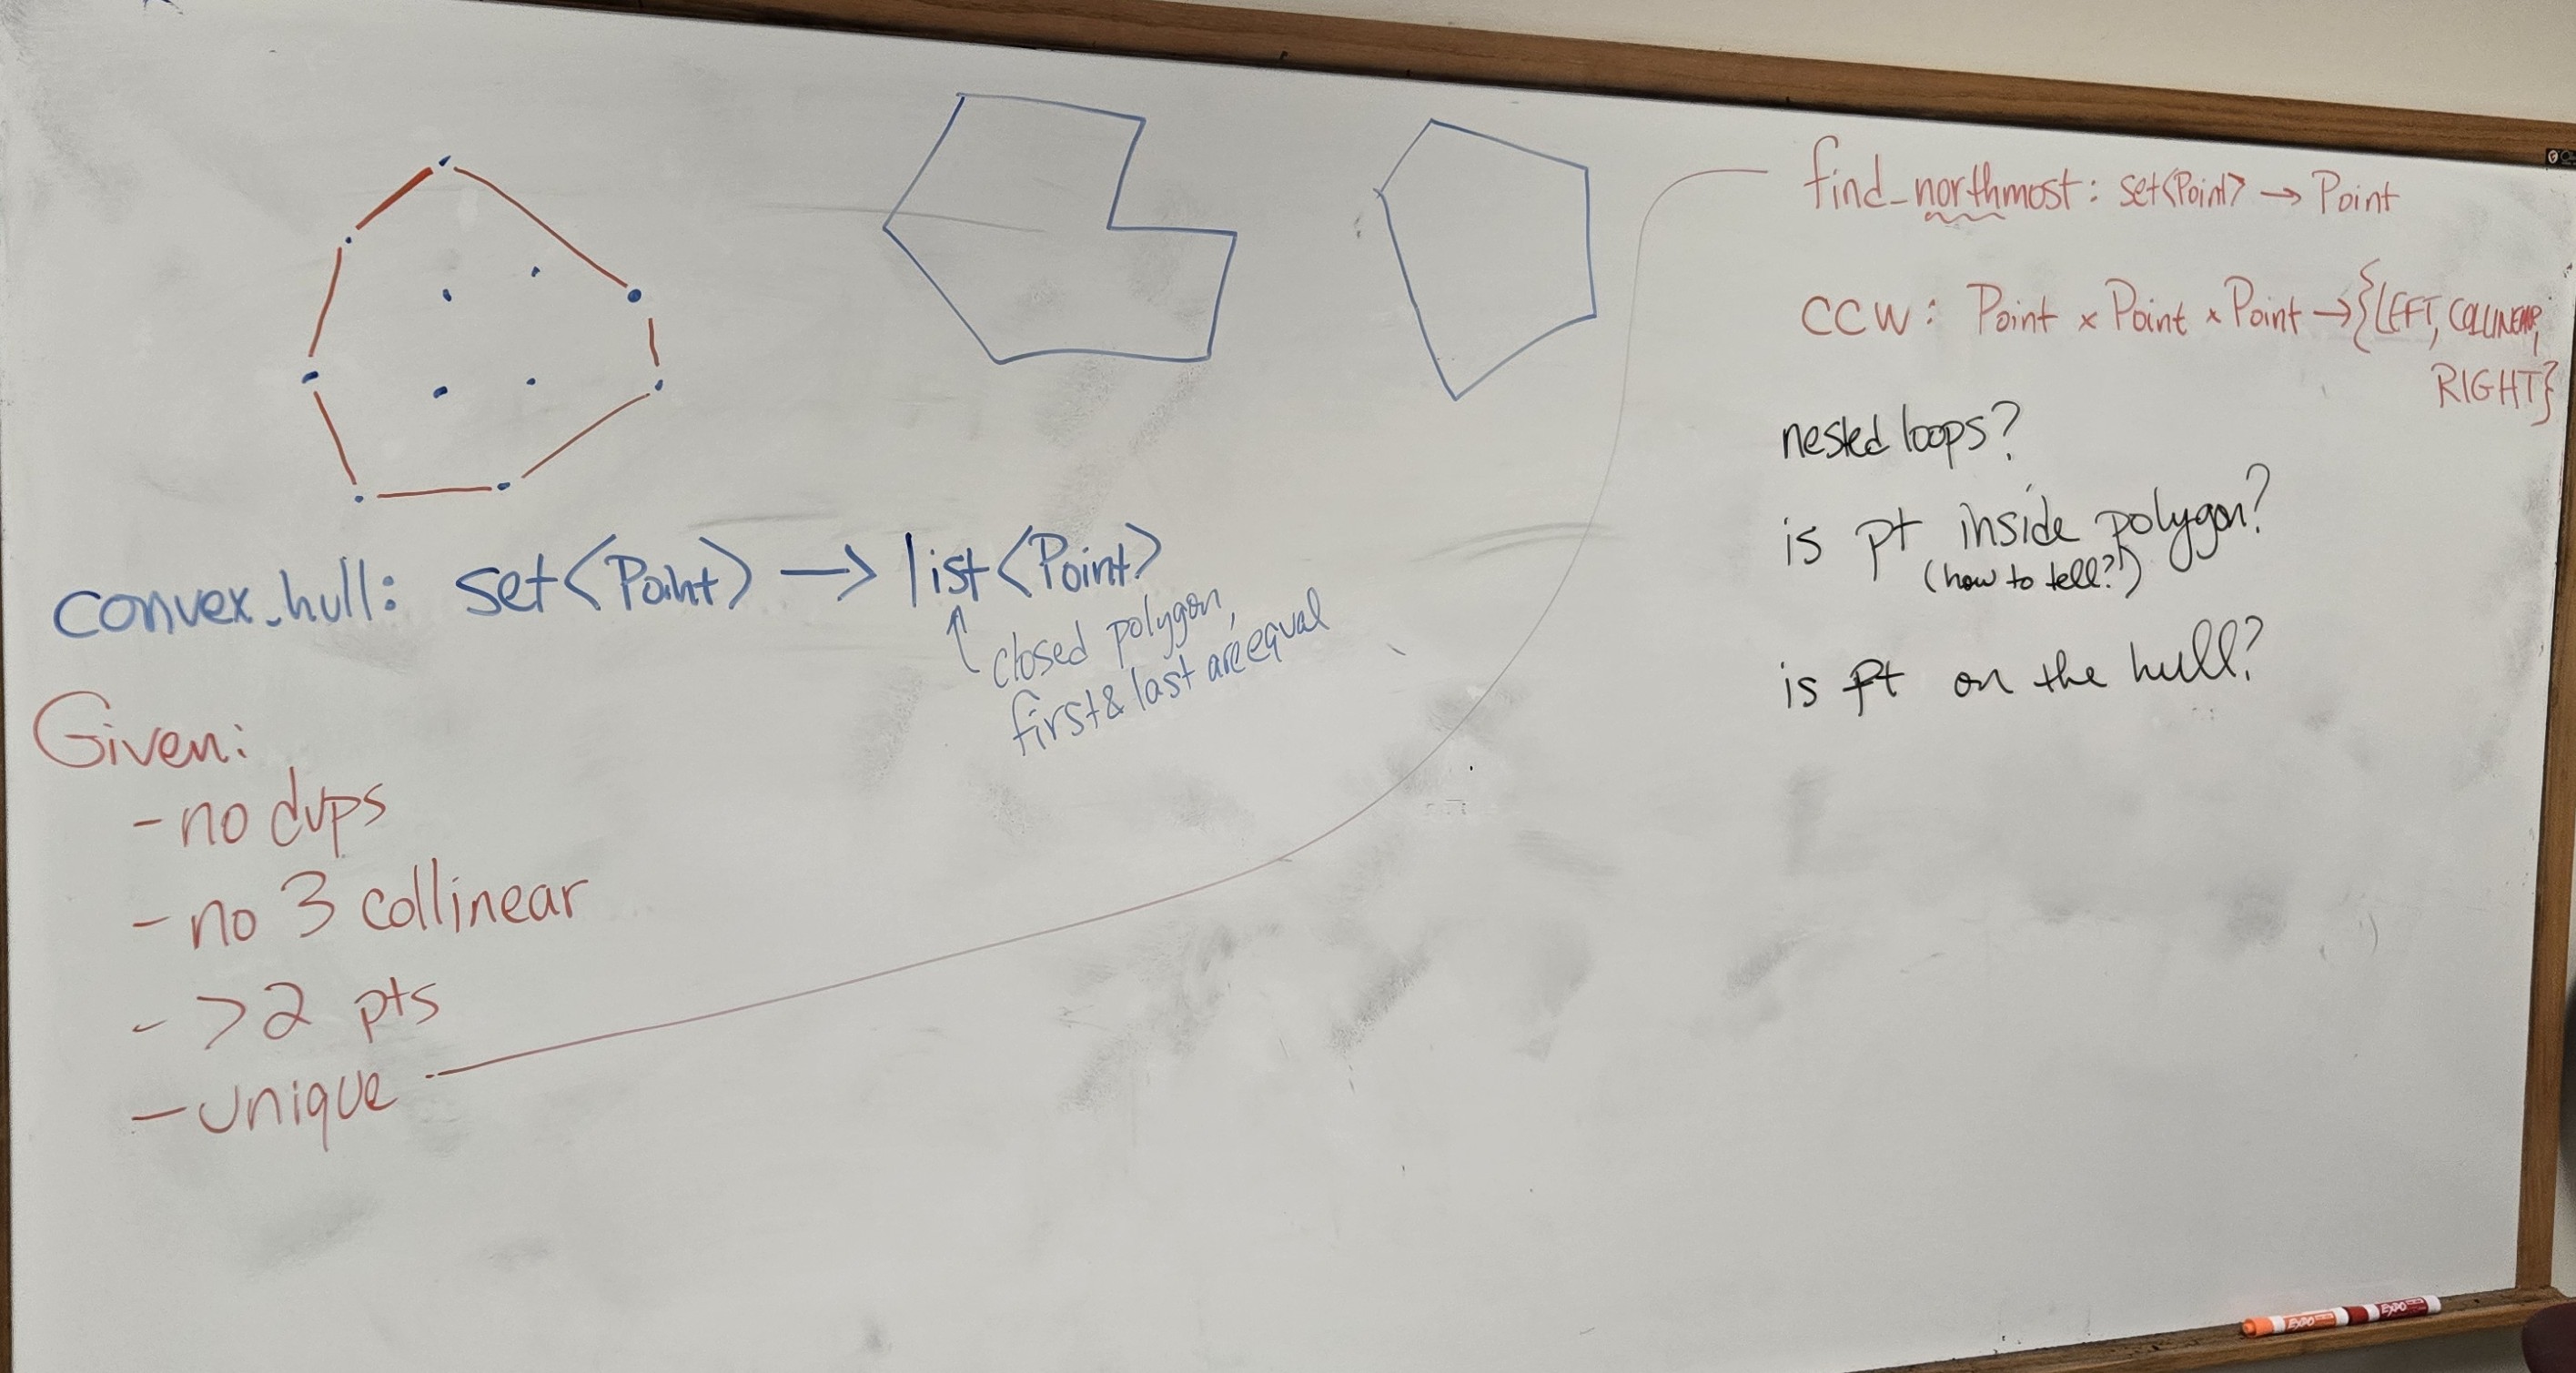 convex_hull: set<Point> → list<Point>
↑ closed polygon,
first & last are equal
Given:
- no dups
- no 3 collinear
- >2 pts
- unique
find_northmost: set<Point> → Point
CCW: Point × Point × Point → {LEFT, COLLINEAR,
RIGHT}
nested loops?
is pt inside polygon?
(how to tell?!)
is pt on the hull?
EXPO
EXPO